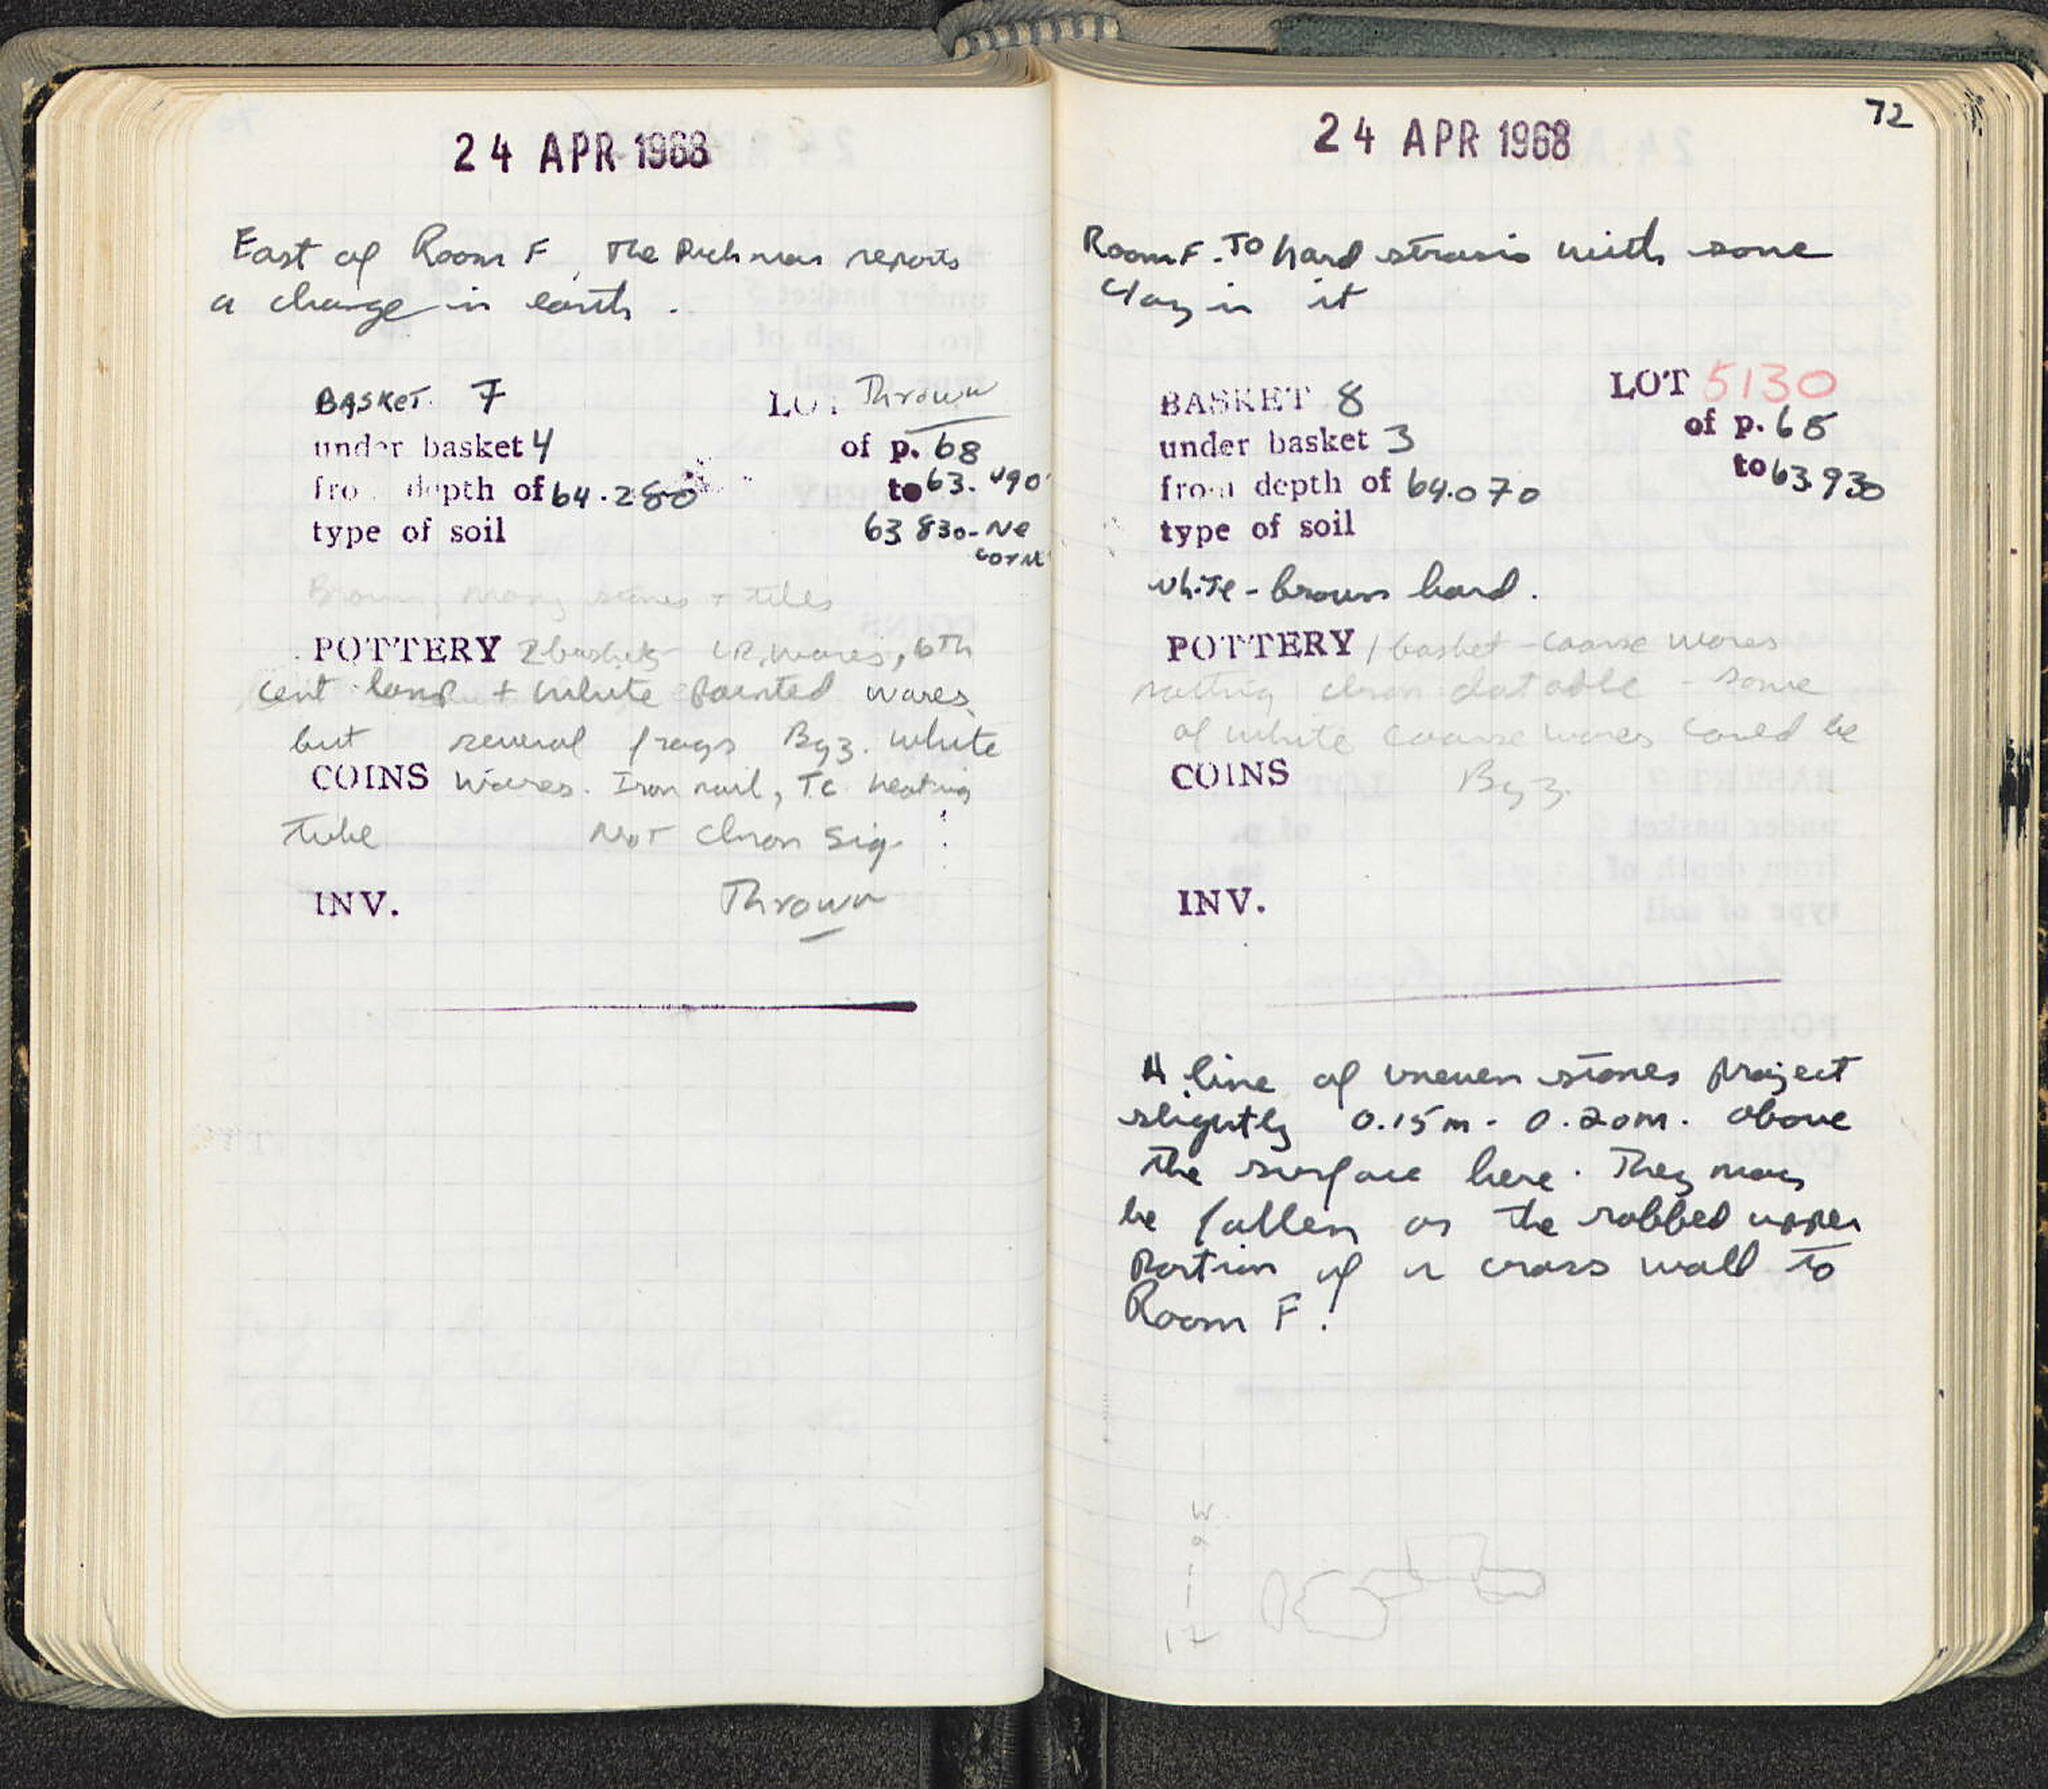 24 APR 1968
East of Room F, The Pickman reports
a change in earth.
BASKET 7 LOT Thrown
under basket 4 of p. 68
from depth of 64.280 to 63.
type of soil 63.830 - NE
corn
Brown, many stones + tiles
POTTERY 2 baskets LR. wares, 6th
cent lamp + white painted wares,
but several frags Byz. white
COINS wares. Iron nail, TC heating
tube Not chron sig.
INV. Thrown
72
24 APR 1968
Room F. To hard strosis with some
clay in it
BASKET 8 LOT 5130
under basket 3 of p. 65
from depth of 64.070 to 63.930
type of soil
white-brown hard.
POTTERY 1 basket - coarse wares
nothing chron datable - some
of white coarse wares could be
COINS Byz.
INV.
A line of uneven stones project
slightly 0.15m - 0.20m. above
the surface here. They may
be fallen or the robbed upper
portion of a cross wall to
Room F.
W
a
l
l
17